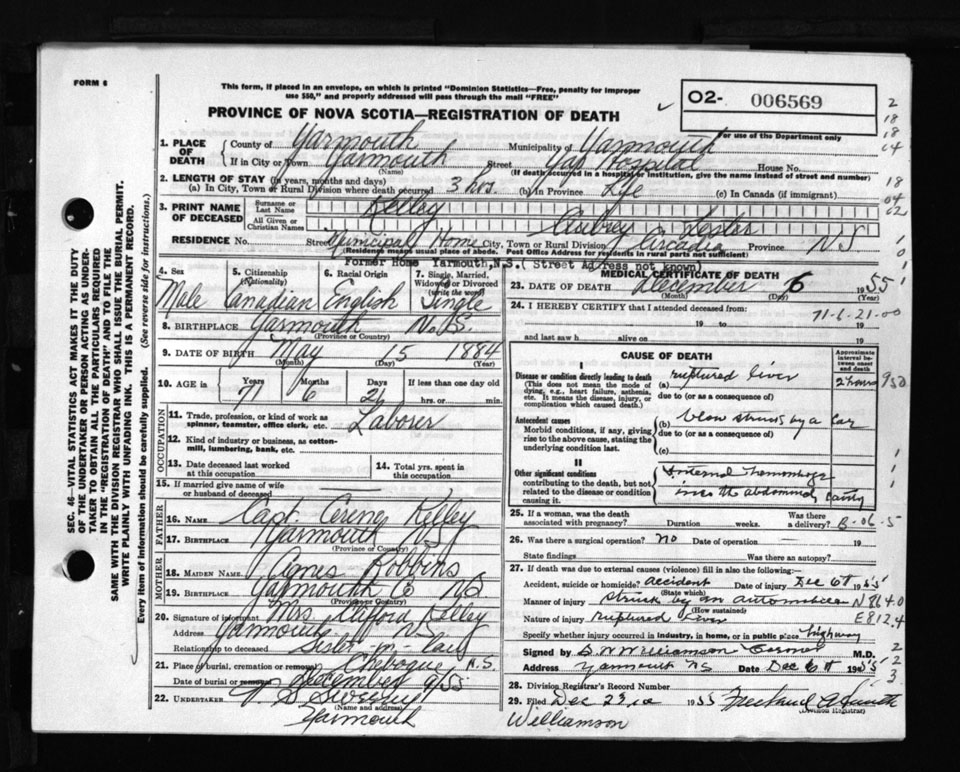 FORM 6
This form, if placed in an envelope, on which is printed "Dominion Statistics—Free, penalty for improper
use $50," and properly addressed will pass through the mail "FREE"
PROVINCE OF NOVA SCOTIA—REGISTRATION OF DEATH
O2- 006569
For use of the Department only
SEC. 46—VITAL STATISTICS ACT MAKES IT THE DUTY
OF THE UNDERTAKER OR PERSON ACTING AS UNDER-
TAKER TO OBTAIN ALL THE PARTICULARS REQUIRED
IN THE "REGISTRATION OF DEATH" AND TO FILE THE
SAME WITH THE DIVISION REGISTRAR WHO SHALL ISSUE THE BURIAL PERMIT.
WRITE PLAINLY WITH UNFADING INK. THIS IS A PERMANENT RECORD.
Every item of information should be carefully supplied. (See reverse side for instructions.)
1. PLACE OF DEATH County of Yarmouth Municipality of Yarmouth
If in City or Town Yarmouth Street Yar Hospital House No.
(Name) (If death occurred in a hospital or institution, give the name instead of street and number)
2. LENGTH OF STAY (in years, months and days)
(a) In City, Town or Rural Division where death occurred 3 hrs. (b) In Province Life (c) In Canada (if immigrant)
3. PRINT NAME OF DECEASED Surname or Last Name Kelley
All Given or Christian Names Aubrey Lester
RESIDENCE No. Street Municipal Home City, Town or Rural Division Arcadia Province N S
(Residence means usual place of abode. Post Office Address for residents in rural parts not sufficient)
Former Home Yarmouth,N.S. ( Street Address not known)
4. Sex Male
5. Citizenship (Nationality) Canadian
6. Racial Origin English
7. Single, Married, Widowed or Divorced (write the word) Single
8. BIRTHPLACE Yarmouth N. S.
(Province or Country)
9. DATE OF BIRTH May 15 1884
(Month) (Day) (Year)
10. AGE in Years 71 Months 6 Days 21 If less than one day old
hrs. or min.
OCCUPATION
11. Trade, profession, or kind of work as
spinner, teamster, office clerk, etc. Laborer
12. Kind of industry or business, as cotton-
mill, lumbering, bank, etc.
13. Date deceased last worked
at this occupation
14. Total yrs. spent in
this occupation
15. If married give name of wife
or husband of deceased
FATHER
16. NAME Capt. Kelley
17. BIRTHPLACE Yarmouth N S
(Province or Country)
MOTHER
18. MAIDEN NAME Agnes Robbins
19. BIRTHPLACE Yarmouth Co NS
(Province or Country)
20. Signature of informant Mrs Kelley
Address Yarmouth N S
Relationship to deceased Sister-in-law
21. Place of burial, cremation or removal Chebogue N.S.
Date of burial or removal December 9/55
22. UNDERTAKER V S Sweeny
Yarmouth
MEDICAL CERTIFICATE OF DEATH
23. DATE OF DEATH December 6 1955
(Month) (Day) (Year)
24. I HEREBY CERTIFY that I attended deceased from:
71-6-21-00
19 to 19
and last saw h alive on 19
CAUSE OF DEATH
Approximate interval between onset and death
I
Disease or condition directly leading to death
(This does not mean the mode of dying, e.g., heart failure, asthenia, etc. It means the disease, injury, or complication which caused death.)
(a) ruptured liver 2 hours
due to (or as a consequence of)
Antecedent causes
Morbid conditions, if any, giving rise to the above cause, stating the underlying condition last.
(b) blow struck by a car
due to (or as a consequence of)
(c)
II
Other significant conditions contributing to the death, but not related to the disease or condition causing it.
Internal hemorrhage
into the abdominal cavity
25. If a woman, was the death
associated with pregnancy? Duration weeks. Was there a delivery?
26. Was there a surgical operation? no Date of operation 19
State findings Was there an autopsy?
27. If death was due to external causes (violence) fill in also the following:
Accident, suicide or homicide? accident Date of injury Dec 6th 1955
(State which)
Manner of injury struck by an automobile N 864.0
(How sustained)
Nature of injury ruptured liver E812.4
Specify whether injury occurred in industry, in home, or in public place highway
Signed by Williamson Coroner M.D.
Address Yarmouth NS Date Dec 6th 1955
28. Division Registrar's Record Number
29. Filed Dec 1955
(Division Registrar)
Williamson